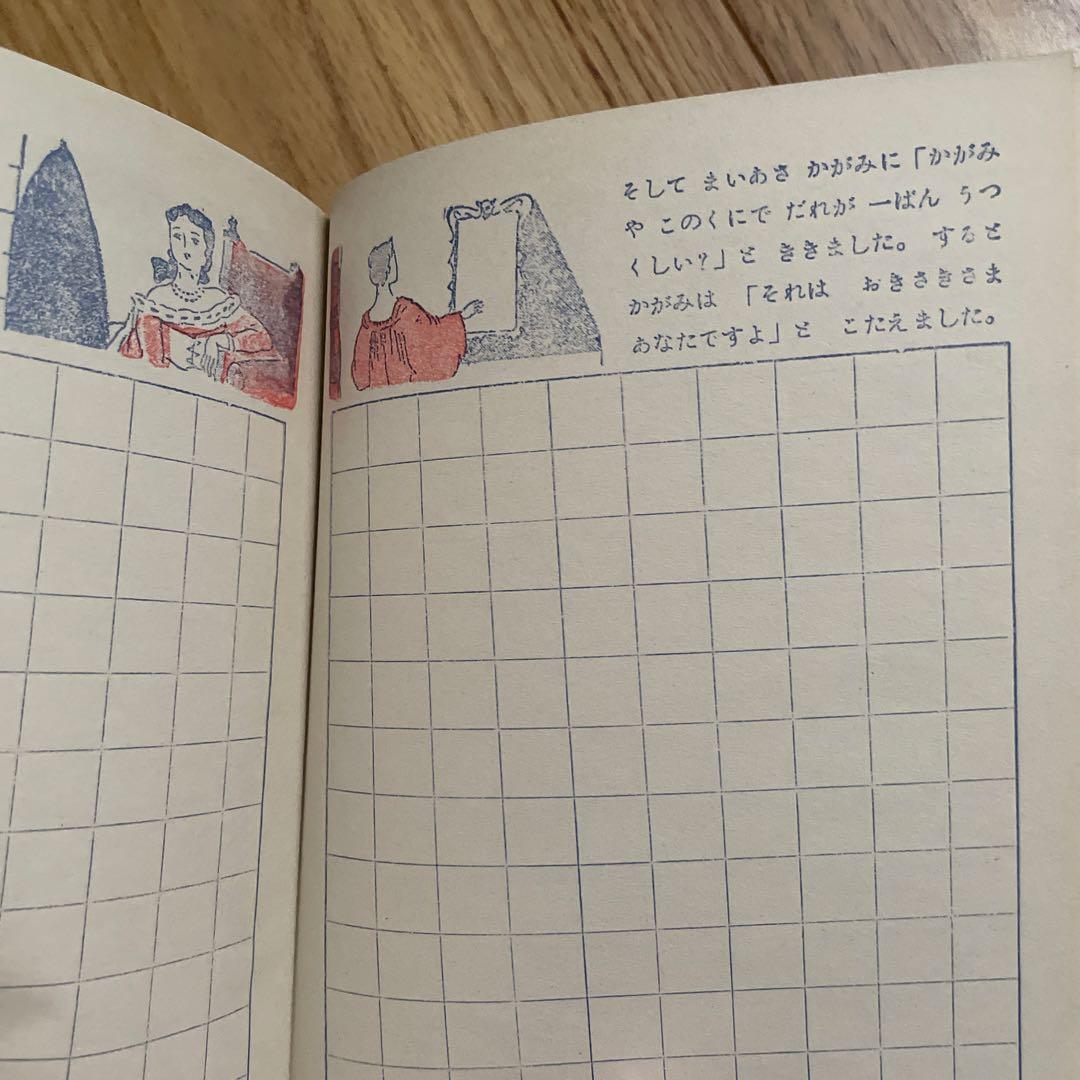 そして まいあさ かがみに「かがみ
や このくにで だれが 一ばん うつ
くしい?」と ききました。 すると
かがみは 「それは おきさきさま
あなたですよ」と こたえました。